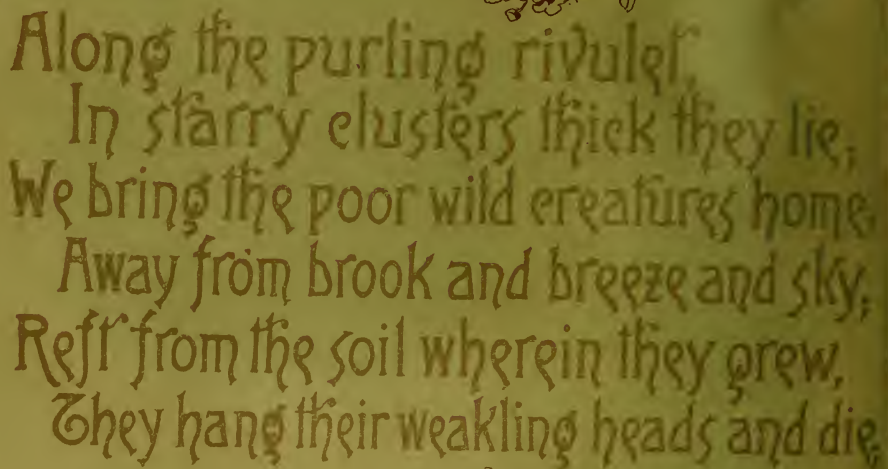 Along the purling rivulet,
In starry clusters thick they lie;
We bring the poor wild creatures home,
Away from brook and breeze and sky;
Reft from the soil wherein they grew,
They hang their weakling heads and die;